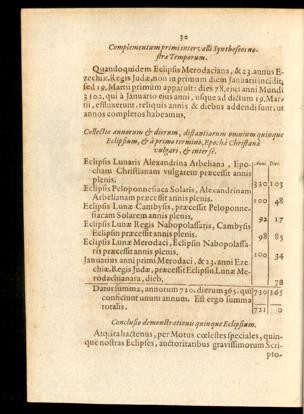 30
Complementum primi intervalli Syntheseos no-
stræ Temporum.
Quandoquidem Eclipsis Merodaciana, & 23. annus E-
zechiæ, Regis Judæ, non in primum diem Januarii incidit,
sed 19. Martii primùm apparuit: dies 78. ejus anni Mundi
3102. qui à Januario ejus anni, usque ad dictum 19. Mar-
tii, effluxerunt, reliquis annis & diebus addendi sunt, ut
annos completos habeamus.
Collectio annorum & dierum, distantiarum omnium quinque
Eclipsium, & à primo termino, Epochâ Christianâ
vulgari, & inter se.
Eclipsis Lunaris Alexandrina Arbeliana, Epo-
cham Christianam vulgarem præcessit annis
plenis. 330 103
Eclipsis Peloponnesiaca Solaris, Alexandrinam
Arbelianam præcessit annis plenis. 100 48
Eclipsis Lunæ Cambysis, præcessit Peloponne-
siacam Solarem annis plenis. 92 17
Eclipsis Lunæ Regis Nabopolassaris, Cambysis
Eclipsin præcessit annis plenis. 98 85
Eclipsis Lunæ Merodaci, Eclipsin Nabopolassa-
ris præcessit annis plenis. 100 34
Januarius anni primi Merodaci, & 23. anni Eze-
chiæ, Regis Judæ, præcessit Eclipsin Lunæ Me-
rodachianara, dieb. 78
Datur summa, annorum 720. dierum 365. qui 720 365
conficiunt unum annum. Est ergo summa
totalis. 721 0
Conclusio demonstrationis quinque Eclipsium.
Atq; ita hactenus, per Motus cœlestes speciales, quin-
que nostras Eclipses, auctoritatibus gravissimorum Scri-
pto-